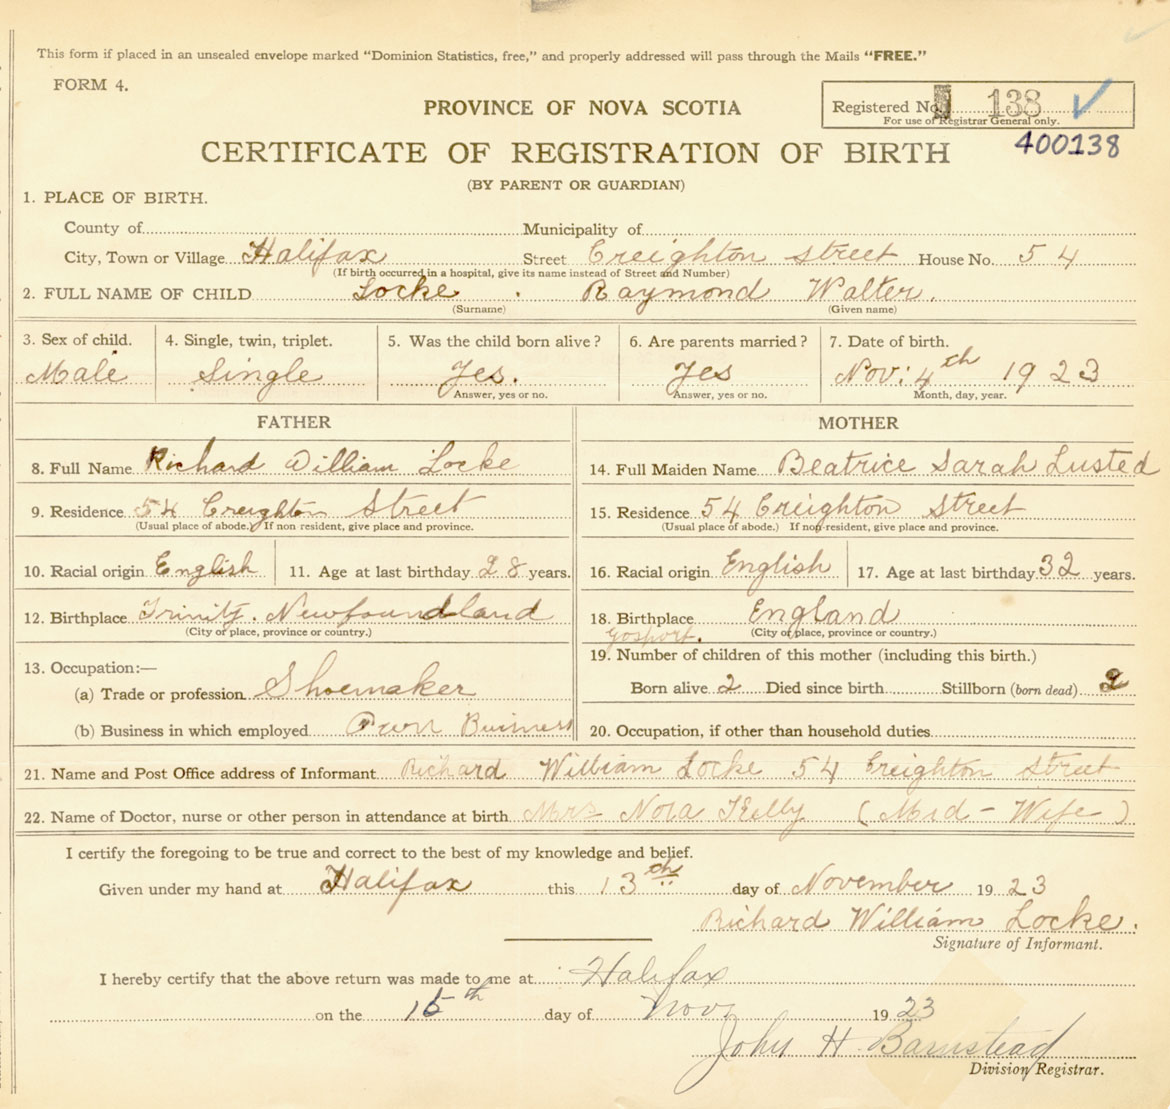 This form if placed in an unsealed envelope marked "Dominion Statistics, free," and properly addressed will pass through the Mails "FREE."
FORM 4.
PROVINCE OF NOVA SCOTIA
Registered No. 138
For use of Registrar General only.
400138
CERTIFICATE OF REGISTRATION OF BIRTH
(BY PARENT OR GUARDIAN)
1. PLACE OF BIRTH.
County of Municipality of
City, Town or Village Halifax Street Creighton Street House No. 54
(If birth occurred in a hospital, give its name instead of Street and Number)
2. FULL NAME OF CHILD Locke . Raymond Walter.
(Surname) (Given name)
3. Sex of child. 4. Single, twin, triplet. 5. Was the child born alive? 6. Are parents married? 7. Date of birth.
Male Single Yes. Yes Nov: 4th 1923
Answer, yes or no. Answer, yes or no. Month, day, year.
FATHER MOTHER
8. Full Name Richard William Locke 14. Full Maiden Name Beatrice Sarah Lusted
9. Residence 54 Creighton Street 15. Residence 54 Creighton Street
(Usual place of abode.) If non resident, give place and province. (Usual place of abode.) If non-resident, give place and province.
10. Racial origin English 11. Age at last birthday 28 years. 16. Racial origin English 17. Age at last birthday 32 years.
12. Birthplace Trinity. Newfoundland 18. Birthplace England
(City or place, province or country.) Gosport. (City or place, province or country.)
13. Occupation:— 19. Number of children of this mother (including this birth.)
(a) Trade or profession Shoemaker Born alive 2 Died since birth Stillborn (born dead) 2
(b) Business in which employed Own Business 20. Occupation, if other than household duties
21. Name and Post Office address of Informant Richard William Locke 54 Creighton Street
22. Name of Doctor, nurse or other person in attendance at birth Mrs Nora Kelly (Mid-Wife)
I certify the foregoing to be true and correct to the best of my knowledge and belief.
Given under my hand at Halifax this 13th day of November 1923
Richard William Locke.
Signature of Informant.
I hereby certify that the above return was made to me at Halifax
on the 15th day of Nov. 1923
John H Barnstead
Division Registrar.